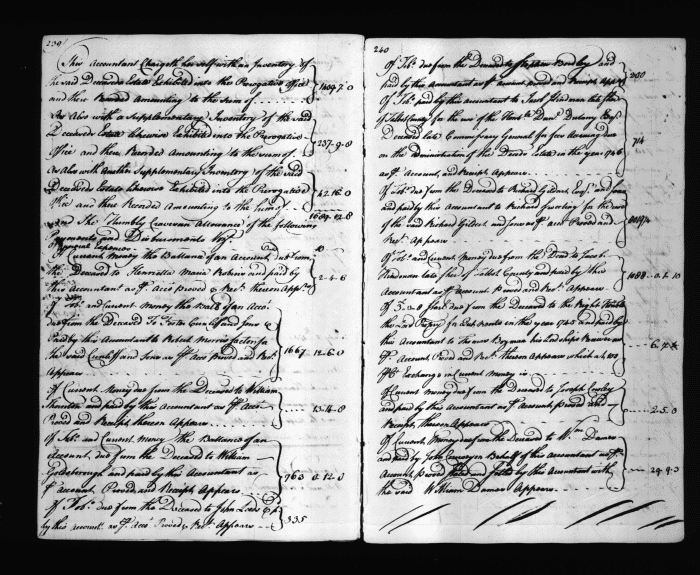 239
This Accountant Chargeth herself with an Inventory of
the said Deceaseds Estate Exhibited into the Prerogative Office
and there Recorded Amounting to the Sum of 1409..7..0
As Also with a Supplementary Inventory of the said
Deceaseds Estate likewise Exhibited into the Prerogative
Office and there Recorded Amounting to the Sum of 237..9..8
As Also with Another Supplementary Inventory of the said
Deceaseds Estate likewise Exhibited into the Prerogative
Office and there Recorded Amounting to the Sum of 42..16..0
1689..12..8
And She Humbly Craveth an Allowance of the following
Payments and Disbursements Viz.
Of Current Money the Ballance of an Account due from
the Deceased to Henrietta Maria and paid by
this Accountant as pr Acct Proved & Rect thereon Appears 2..4..6
Of Tobo and Current Money the Balla of an Acco
due from the Deceased To Foster Cunliff and Sons &
Paid by this Accountant to Robert Morris Factor for
the said Cunliff and Sons as pr Acco Proved and Rect
Appears 1667 12..6..0
Of Current Money due from the Deceased to William
Thornton and paid by this Accountant as pr Acct
Proved and Receipt thereon Appears 13..4..8
Of Tobo and Current Money the Ballance of an
Account due from the Deceased to William
Goldsborough and paid by this Accountant as
pr account Proved and Receipt Appears 763 0..12..0
Of Tobo due from the Deceased to John Loeds & pd
by this Accountt as pr Acco Proved & Rect Appears 335
240
Of Tobo due from the Deceased to Stephen and
paid by this Accountant as pr account proved and Receipt Appears 200
Of Tobo paid by this accountant to Jacob Hindman late Sheriff
of Talbot County for the use of the Danl Dulany Esqr
Deceased late Commissary General for fees Accruing due
on the Administration of the Deceds Estate in the year 1746
as pr Accot and Receipt Appears 714
Of Tobo due from the Deceased to Richard Gildart Esqr and Sons
and paid by this Accountant to Richard for the use
of the said Richard Gildart and Sons as pr acco Proved and
Rect Appears
Of Tobo and Current Money due from the Deced to Jacob
Hindman late Sherif of Talbot County and paid by this
Accountant as pr account Proved and Rect Appears 1088 0..2..10
Of due from the Deceased to the Right Honble
the Lord Propry for Quit Rents in the year 1745 and paid by
this Accountant to Thomas his Lordships Receiver as
pr Account Proved and Rect thereon Appears which at
pr Ct Exchange is Current Money is
Of Current Money due from the Deceased to Joseph
and paid by this Accountant as pr Account proved and
Receipt thereon Appears 2..5..0
Of Current Money due from the Deceased to Wm Dames
and paid by John in Behalf of this Accountant as pr
Account proved by this Accountant with
the said William Dames Appears 29..9..3